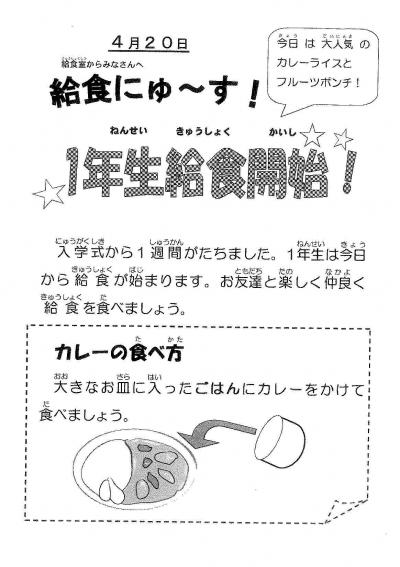 4月20日
給食室からみなさんへ
給食にゅ～す！
今日は大人気の
カレーライスと
フルーツポンチ！
1年生給食開始！
入学式から1週間がたちました。1年生は今日
から給食が始まります。お友達と楽しく仲良く
給食を食べましょう。
カレーの食べ方
大きなお皿に入ったごはんにカレーをかけて
食べましょう。